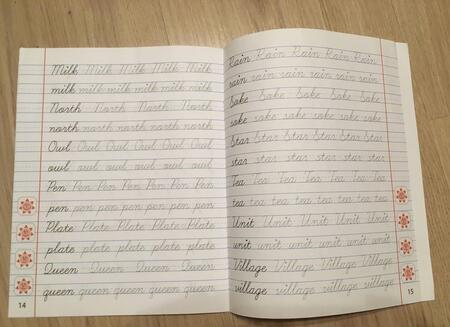 Milk Milk Milk Milk Milk
milk milk milk milk milk milk
North North North North
north north north north north
Owl Owl Owl Owl Owl
owl owl owl owl owl owl
Pen Pen Pen Pen Pen Pen
pen pen pen pen pen pen pen
Plate Plate Plate Plate Plate
plate plate plate plate plate
Queen Queen Queen Queen
queen queen queen queen queen
14
Rain Rain Rain Rain Rain
rain rain rain rain rain rain
Sake Sake Sake Sake Sake
sake sake sake sake sake
Star Star Star Star Star Star
star star star star star star
Tea Tea Tea Tea Tea Tea
tea tea tea tea tea tea tea
Unit Unit Unit Unit Unit
unit unit unit unit unit unit
Village Village Village Village
village village village village
15